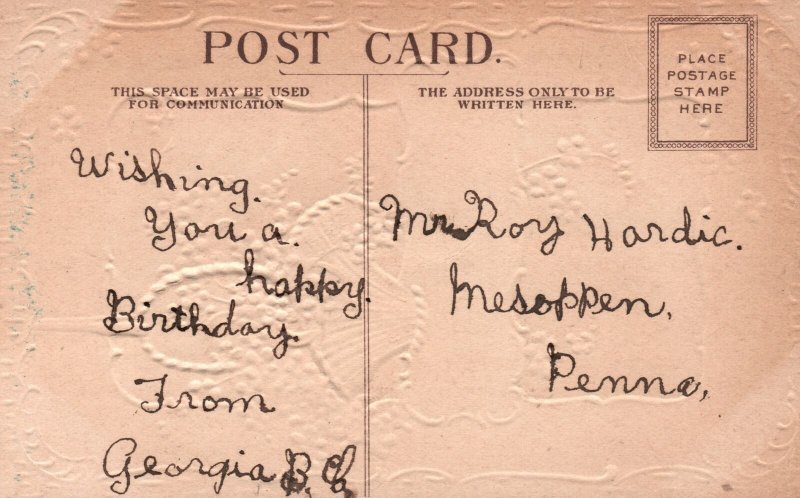 POST CARD.
THIS SPACE MAY BE USED
FOR COMMUNICATION
THE ADDRESS ONLY TO BE
WRITTEN HERE.
PLACE
POSTAGE
STAMP
HERE
Wishing.
You a.
happy.
Birthday.
From
Georgia B.
Mr. Roy Hardic.
Mesoppen,
Penna,